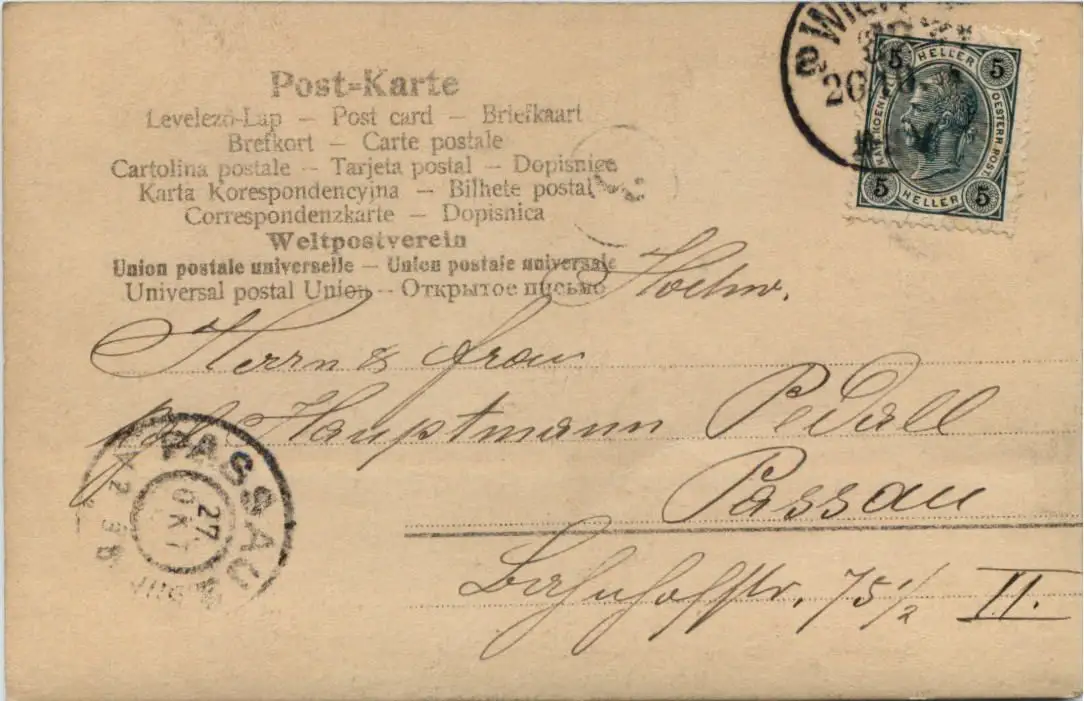 Post-Karte
Levelezö-Lap – Post card – Briefkaart
Brefkort – Carte postale
Cartolina postale – Tarjeta postal – Dopisnice
Karta Korespondencyjna – Bilhete postal
Correspondenzkarte – Dopisnica
Weltpostverein
Union postale universelle – Union postale universale
Universal postal Union – Открытое письмо
WIEN
26 10
5 HELLER 5
KAIS. KOENIGL. OESTERR. POST
5 HELLER 5
Hochw.
Herrn & Frau
Hauptmann Pedall
Passau
Bahnhofstr. 75 1/2 II.
PASSAU
27
OKT